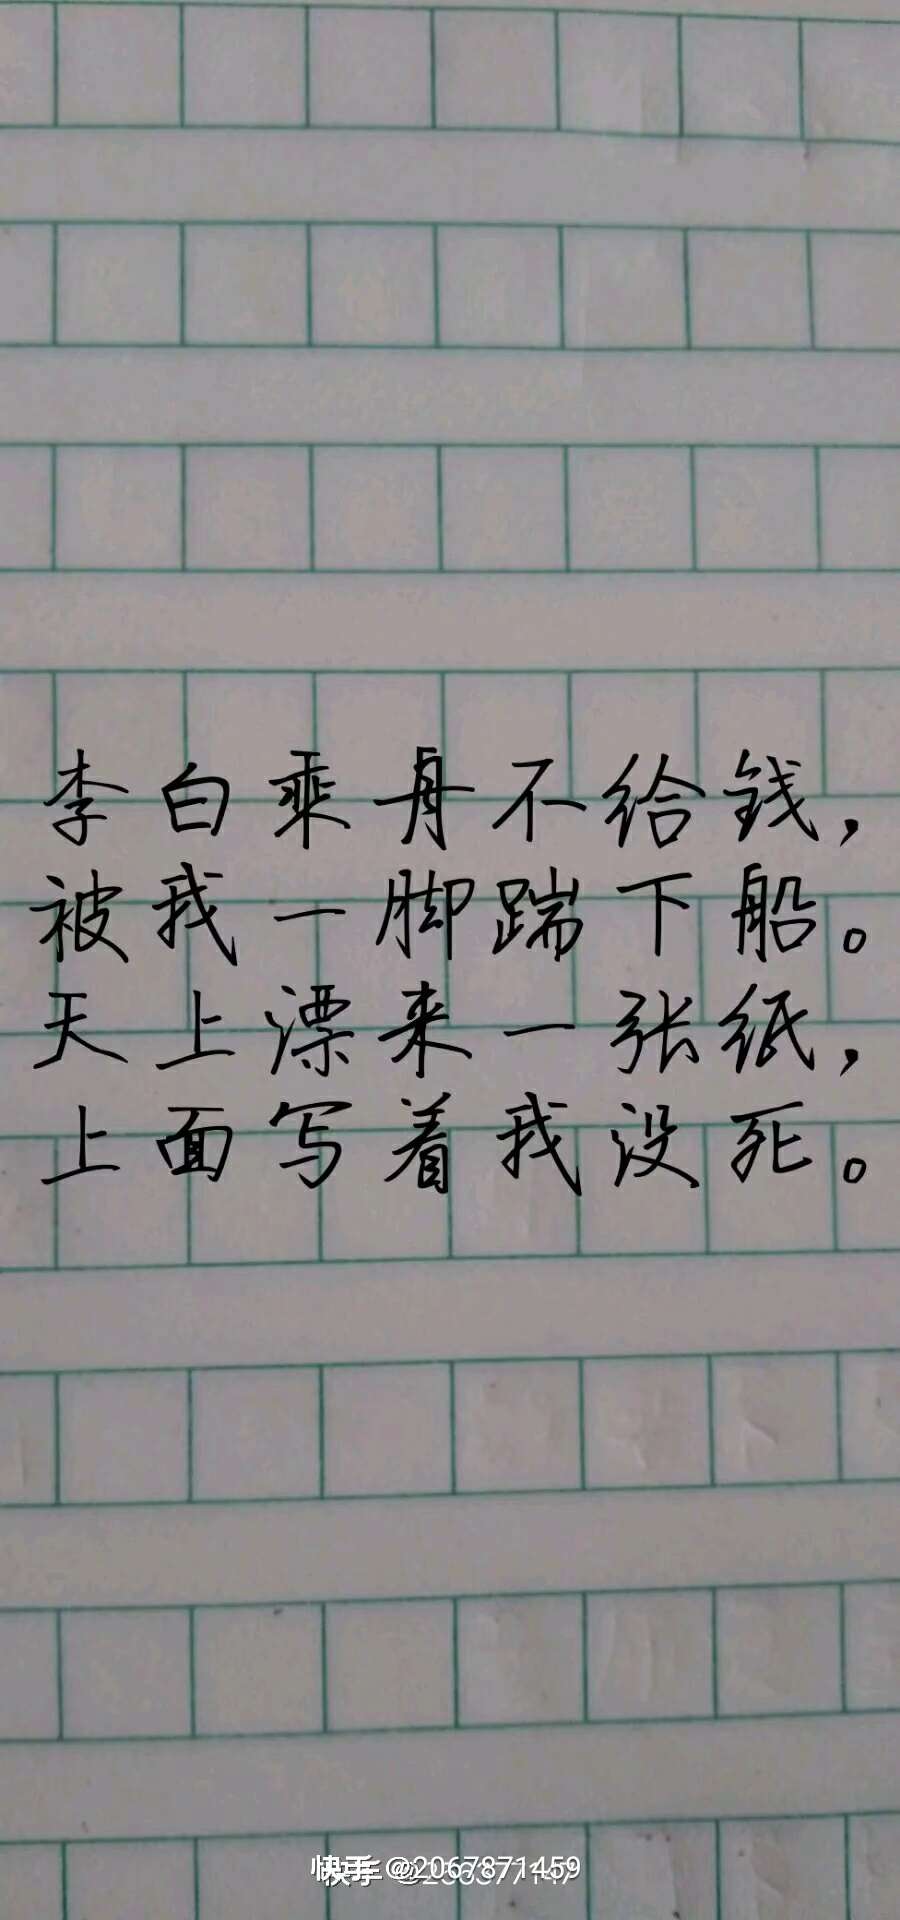 李白乘舟不给钱，
被我一脚踹下船。
天上漂来一张纸，
上面写着我没死。
快手 @2067871459